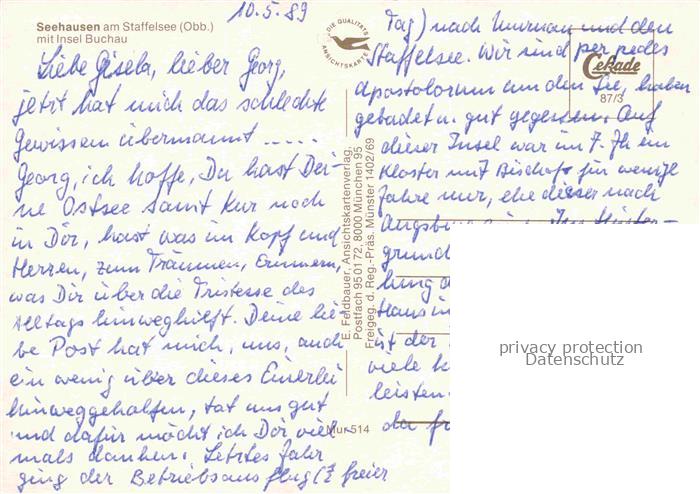 10.5.89
Seehausen am Staffelsee (Obb.)
mit Insel Buchau
DIE QUALITÄTS
ANSICHTSKARTE
Cekade
87/3
Liebe Gisela, lieber Georg,
jetzt hat mich das schlechte
Gewissen übermannt .....
Georg, ich hoffe, Du hast Dei-
ne Ostsee samt Kur noch
in Dir, hast was im Kopf und
Herzen, zum Träumen, Erinnern,
was Dir über die Tristesse des
Alltags hinweghilft. Deine lie-
be Post hat mich, uns, auch
ein wenig über dieses Einerlei
hinweggeholfen, tat uns gut
und dafür möcht ich Dir viel-
mals danken. Letztes Jahr
ging der Betriebsausflug (1/2 freier
Tag) nach Murnau und den
Staffelsee. Wir sind per pedes
apostolorum um den See, haben
gebadet u. gut gegessen. Auf
dieser Insel war im 7. Jh ein
Kloster mit Bischof für wenige
Jahre nur, ehe dieser nach
Augsburg ging. Im Hinter-
grund
Haus in
ist der
viele
leisten
da
E. Feldbauer, Ansichtskartenverlag,
Postfach 95 01 72, 8000 München 95
Freigeg. d. Reg.-Präs. Münster 1402/69
Mur 514
privacy protection
Datenschutz